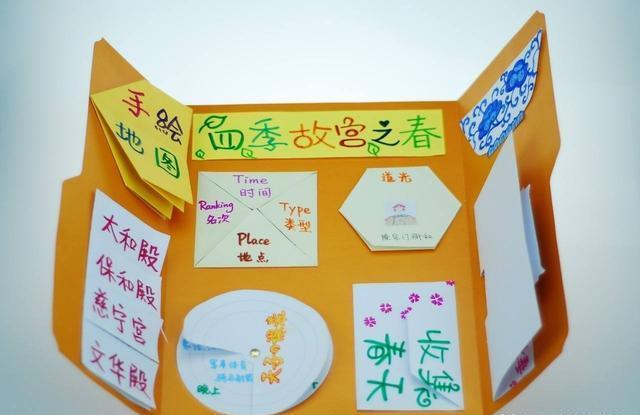 手绘
地图
四季故宫之春
Time
时间
Ranking
名次
Type
类型
Place
地点
道光
太和殿
保和殿
慈宁宫
文华殿
晚上
收集
春天